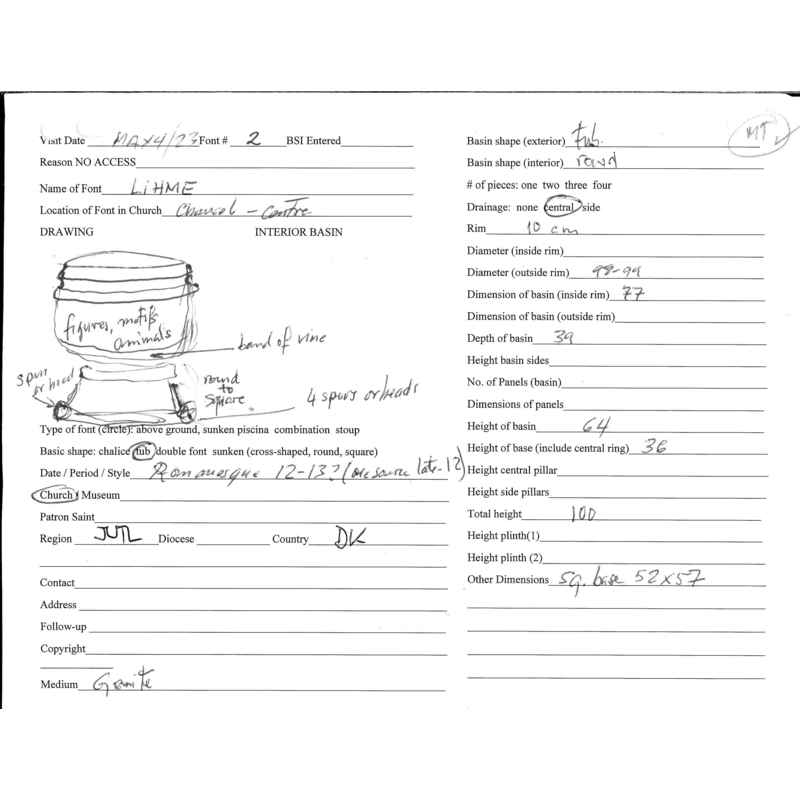 Visit Date MAY4/23 Font # 2 BSI Entered
Reason NO ACCESS
Name of Font LIHME
Location of Font in Church Chancel - Centre
DRAWING INTERIOR BASIN
figures, motifs
animals
band of vine
spurs
or head
round
to
square
4 spurs or heads
Type of font (circle): above ground, sunken piscina combination stoup
Basic shape: chalice tub double font sunken (cross-shaped, round, square)
Date / Period / Style Romanesque 12-13? (one source late-12)
Church / Museum
Patron Saint
Region JUTL Diocese Country DK
Contact
Address
Follow-up
Copyright
Medium Granite
MT
Basin shape (exterior) tub.
Basin shape (interior) round
# of pieces: one two three four
Drainage: none central side
Rim 10 cm
Diameter (inside rim)
Diameter (outside rim) 98-99
Dimension of basin (inside rim) 77
Dimension of basin (outside rim)
Depth of basin 39
Height basin sides
No. of Panels (basin)
Dimensions of panels
Height of basin 64
Height of base (include central ring) 36
Height central pillar
Height side pillars
Total height 100
Height plinth(1)
Height plinth (2)
Other Dimensions sq. base 52x57